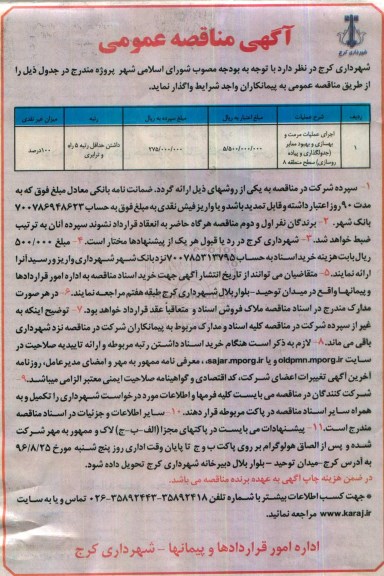 آگهی مناقصه عمومی
شهرداری کرج
شهرداری کرج در نظر دارد با توجه به بودجه مصوب شورای اسلامی شهر پروژه مندرج در جدول ذیل را
از طریق مناقصه عمومی به پیمانکاران واجد شرایط واگذار نماید.
ردیف شرح عملیات مبلغ اعتبار به ریال مبلغ سپرده به ریال رتبه میزان غیر نقدی
۱ اجرای عملیات مرمت و بهسازی و بهبود معابر (جدولگذاری و پیاده روسازی) سطح منطقه ۸ ۵/۵۰۰/۰۰۰/۰۰۰ ۲۷۵/۰۰۰/۰۰۰ داشتن حداقل رتبه ۵ راه و ترابری ۱۰۰درصد
۱- سپرده شرکت در مناقصه به یکی از روشهای ذیل ارائه گردد. ضمانت نامه بانکی معادل مبلغ فوق که به
مدت ۹۰ روز اعتبار داشته و قابل تمدید باشد و یا واریز فیش نقدی به مبلغ فوق به حساب ۷۰۰۷۸۶۹۴۸۶۲۳
بانک شهر. ۲- برندگان نفر اول و دوم مناقصه هرگاه حاضر به انعقاد قرارداد نشوند سپرده آنان به ترتیب
ضبط خواهد شد. ۳- شهرداری کرج در رد یا قبول هر یک از پیشنهادها مختار است. ۴- مبلغ ۵۰۰/۰۰۰
ریال بابت هزینه خرید اسناد به حساب ۷۰۰۷۸۵۳۱۳۷۹۵ نزد بانک شهر شهرداری واریز و رسید آنرا
ارائه نمایند. ۵- متقاضیان می توانند از تاریخ انتشار آگهی جهت خرید اسناد مناقصه به اداره امور قراردادها
و پیمانها واقع در میدان توحید- بلوار بلال شهرداری کرج طبقه هفتم مراجعه نمایند. ۶- در هر صورت
مدارک مندرج در اسناد مناقصه ملاک فروش اسناد و متعاقباً عقد قرارداد خواهد بود. ۷- توضیح اینکه به
غیر از سپرده شرکت در مناقصه کلیه اسناد و مدارک مربوط به پیمانکاران شرکت در مناقصه نزد شهرداری
باقی می ماند. ۸- لازم به ذکر است هنگام خرید اسناد داشتن رتبه مربوطه و ارائه تاییدیه صلاحیت در
سایت oldpmn.mporg.ir و یا sajar.mporg.ir، معرفی نامه ممهور به مهر و امضای مدیرعامل، روزنامه
آخرین آگهی تغییرات اعضای شرکت، کد اقتصادی و گواهینامه صلاحیت ایمنی معتبر الزامی میباشد. ۹-
شرکت کنندگان در مناقصه می بایست کلیه فرمها و اطلاعات مورد درخواست شهرداری را تکمیل و به
همراه سایر اسناد مناقصه در پاکت مربوطه قرار دهند. ۱۰- سایر اطلاعات و جزئیات در اسناد مناقصه
مندرج است. ۱۱- پیشنهادات می بایست در پاکتهای مجزا (الف-ب-ج) لاک و ممهور به مهر شرکت
شده و پس از الصاق هولوگرام بر روی پاکت ب و ج تا پایان وقت اداری روز پنج شنبه مورخ ۹۶/۸/۲۵
به آدرس کرج-میدان توحید - بلوار بلال دبیرخانه شهرداری کرج تحویل داده شود.
در ضمن هزینه چاپ آگهی به عهده برنده مناقصه می باشد.
* جهت کسب اطلاعات بیشتر با شماره تلفن ۳۵۸۹۲۴۱۸-۳۵۸۹۲۴۴۳-۰۲۶ تماس و یا به سایت
www.karaj.ir مراجعه نمائید.
اداره امور قراردادها و پیمانها - شهرداری کرج